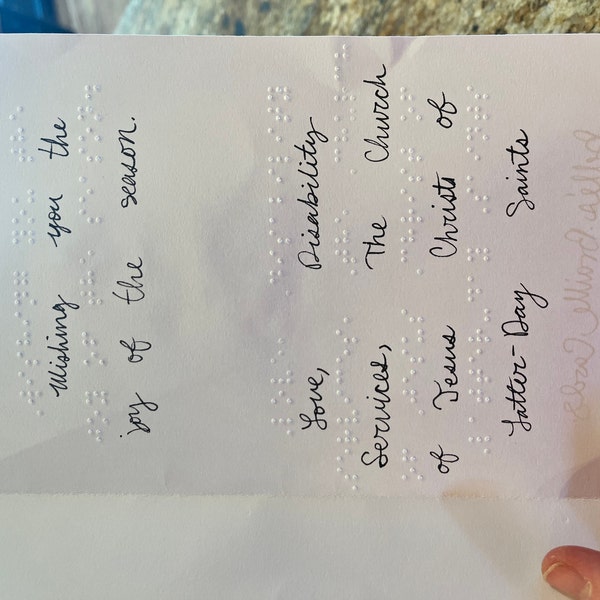 Wishing you the
joy of the season.
Love, Disability
Services, The Church
of Jesus Christ of
Latter-Day Saints